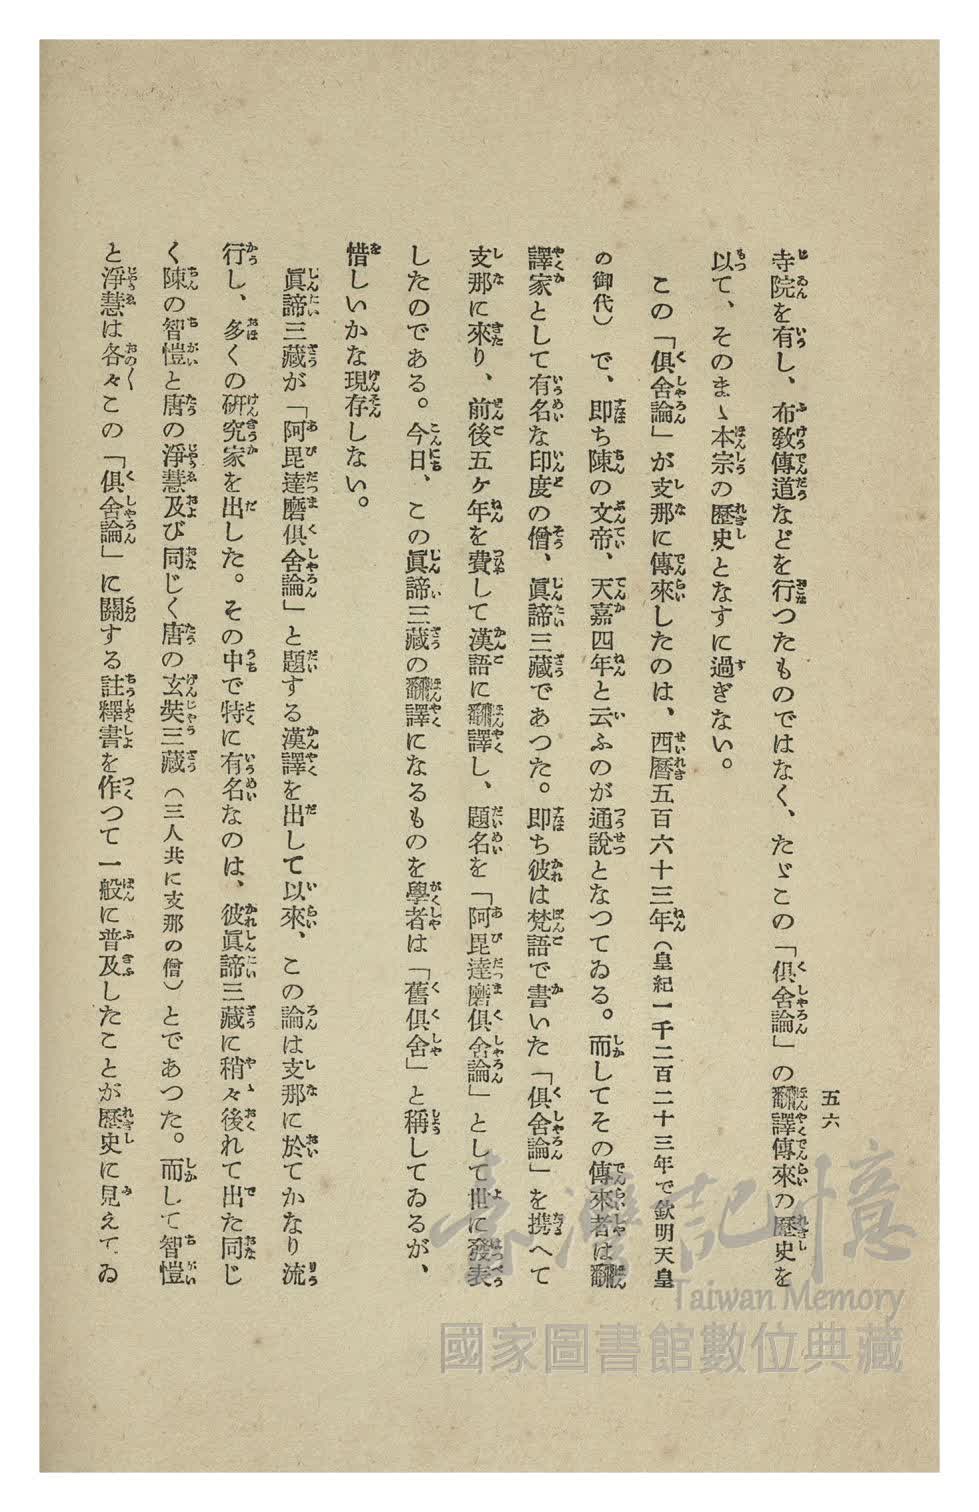 五六
寺院を有し、布敎傳道などを行つたものではなく、たゞこの「俱舍論」の飜譯傳來の歷史を
以て、そのまゝ本宗の歷史となすに過ぎない。
この「俱舍論」が支那に傳來したのは、西曆五百六十三年（皇紀一千二百二十三年で欽明天皇
の御代）で、卽ち陳の文帝、天嘉四年と云ふのが通說となつてゐる。而してその傳來者は飜
譯家として有名な印度の僧、眞諦三藏であつた。卽ち彼は梵語で書いた「俱舍論」を携へて
支那に來り、前後五ヶ年を費して漢語に飜譯し、題名を「阿毘達磨俱舍論」として世に發表
したのである。今日、この眞諦三藏の飜譯になるものを學者は「舊俱舍」と稱してゐるが、
惜しいかな現存しない。
眞諦三藏が「阿毘達磨俱舍論」と題する漢譯を出して以來、この論は支那に於てかなり流
行し、多くの硏究家を出した。その中で特に有名なのは、彼眞諦三藏に稍々後れて出た同じ
く陳の智愷と唐の淨慧及び同じく唐の玄奘三藏（三人共に支那の僧）とであつた。而して智愷
と淨慧は各々この「俱舍論」に關する註釋書を作つて一般に普及したことが歷史に見えてゐ
臺灣記憶
Taiwan Memory
國家圖書館數位典藏